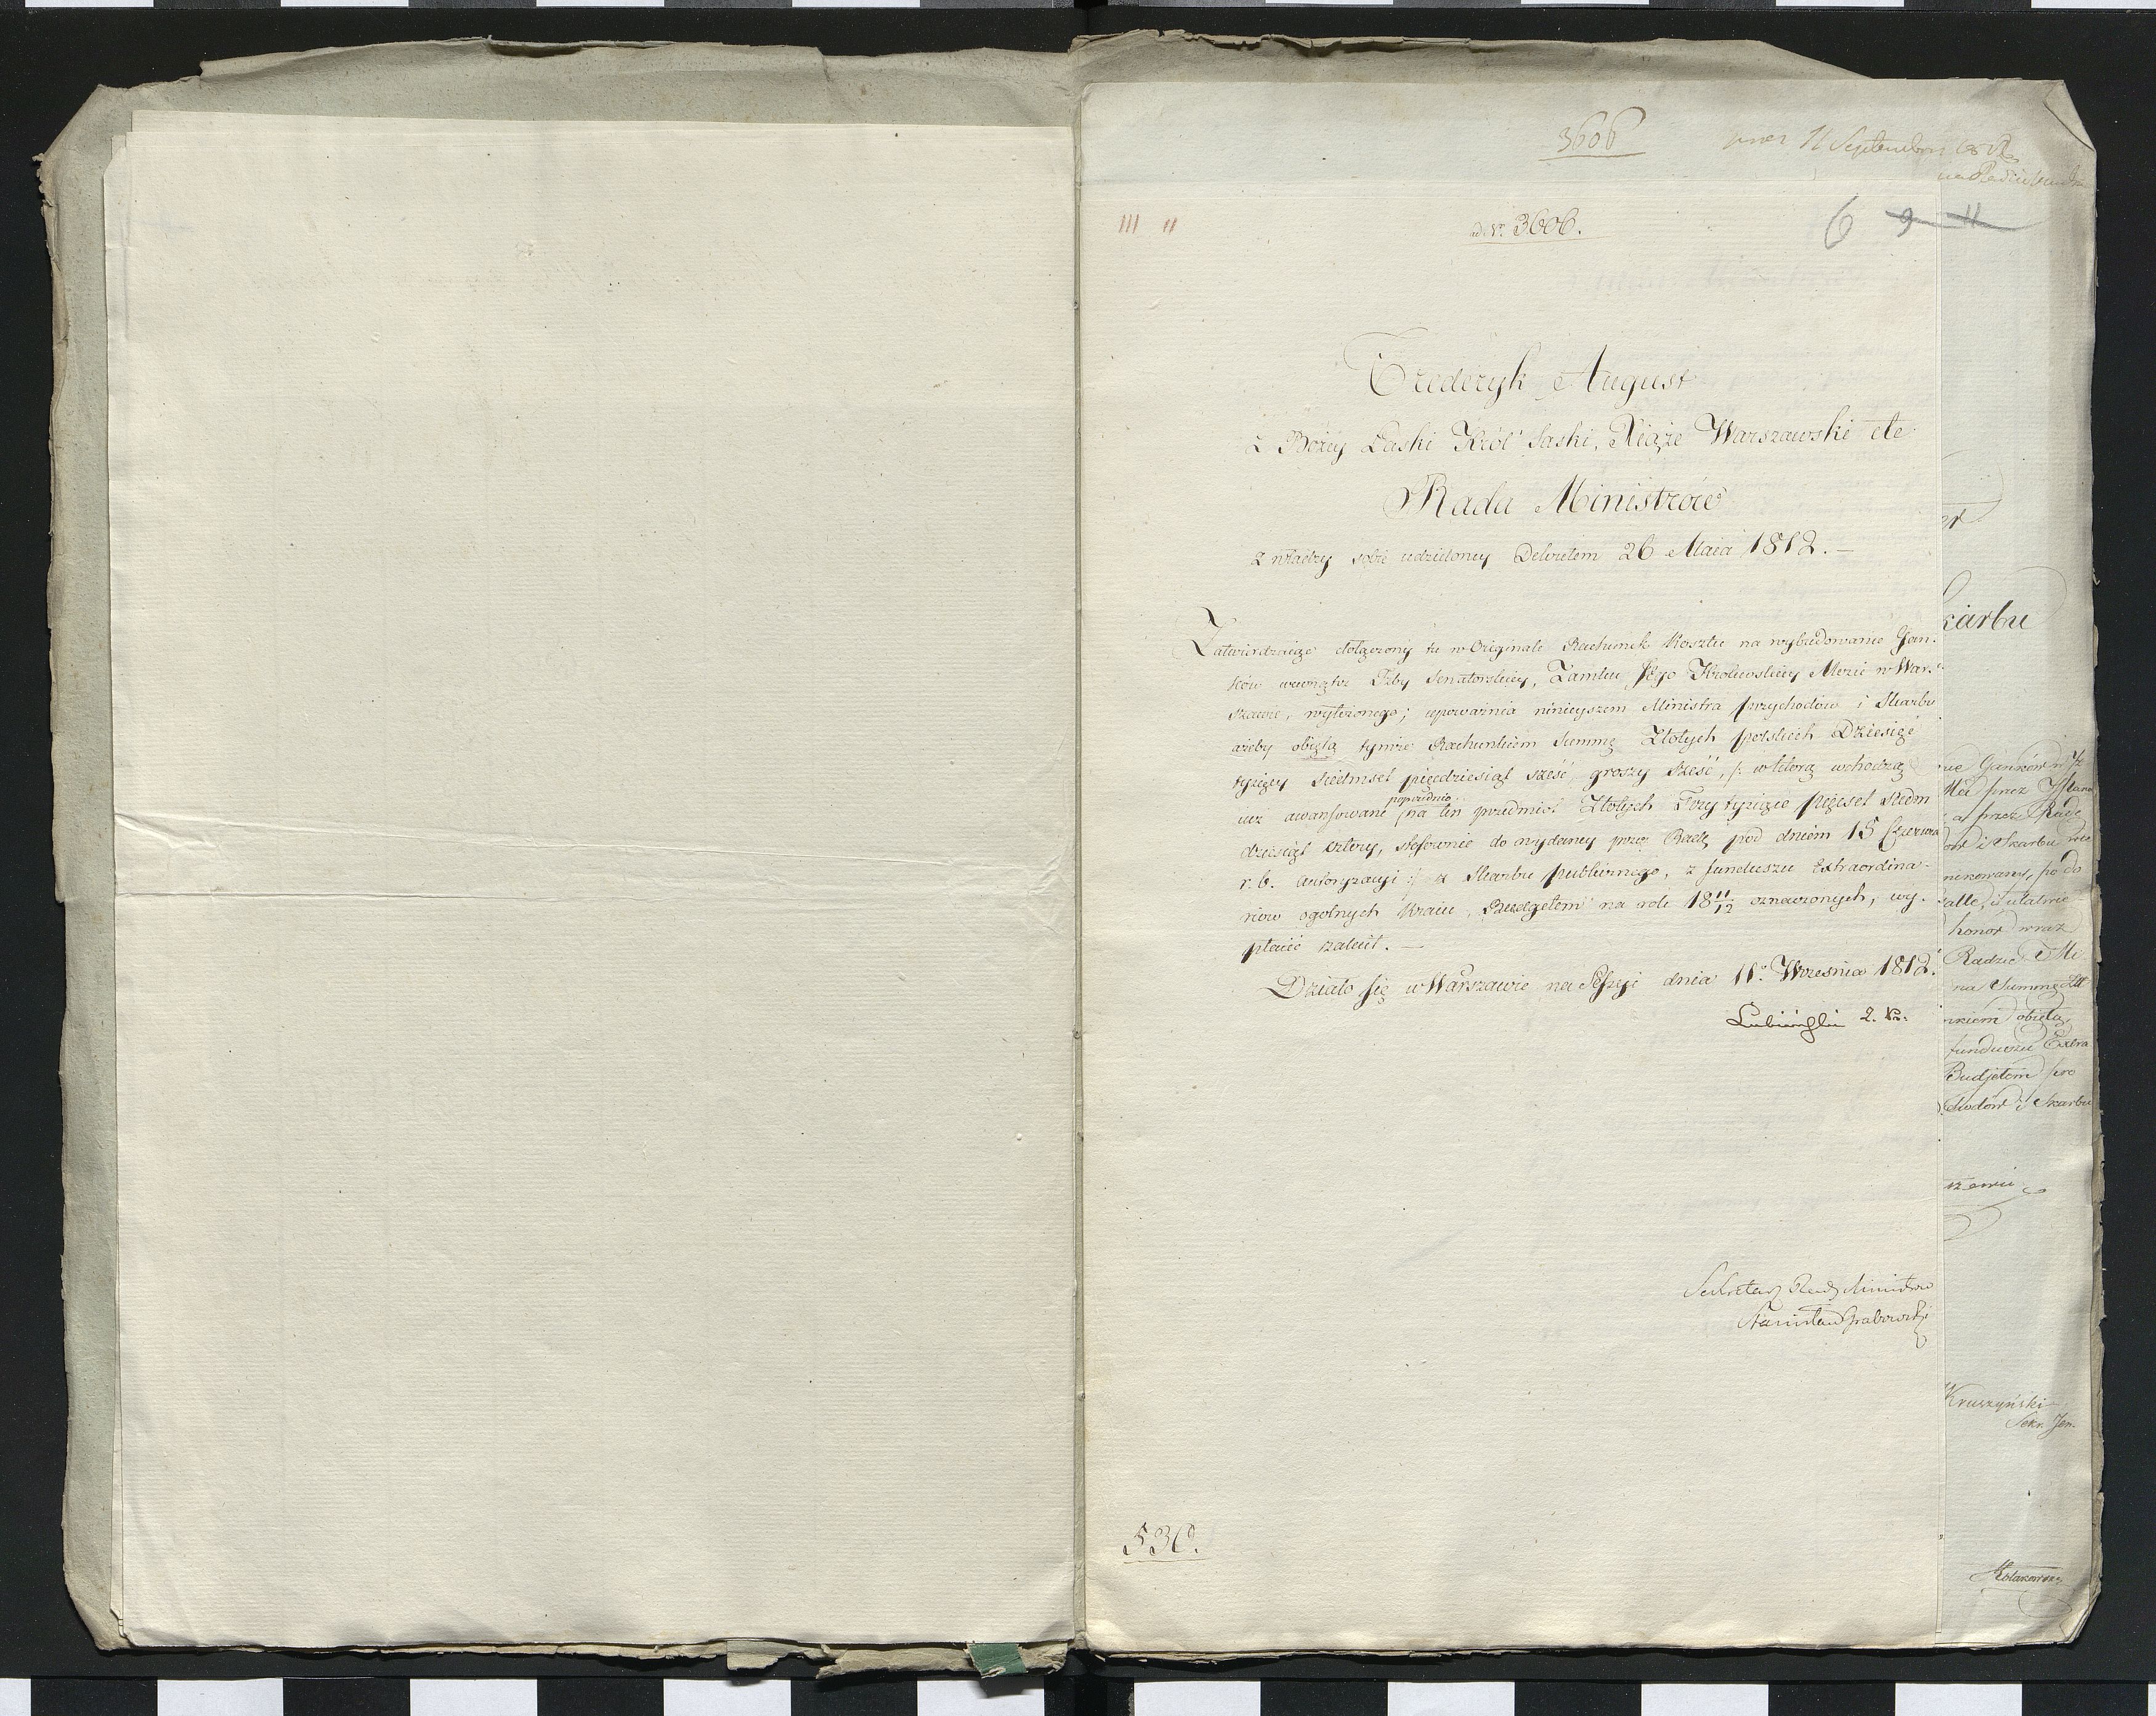 3606
11 Septembr
III II
ad Nr. 3606.
6 9 11
Fréderyk August
z Bożey Łaski Król Saski, Xiąże Warszawski etc
Rada Ministrów
Z władzy sobie udzieloney Dekretem 26 Maia 1812. —
Zatwierdzaiąc dołączony tu w Originale Rachunek Kosztu na wybudowanie Gan-
ków wewnątrz Izby Senatorskiey, Zamku Jego Krolewskiey Mości w War-
szawie, wyłożonego; upoważnia ninieyszem Ministra przychodów i Skarbu
ażeby obiętą tymże Rachunkiem Summę Złotych polskich Dziesięć
tysięcy Siedmset pięćdziesiąt sześć, groszy sześć, /: w którą wchodzą
iuż awansowane poprzednio na ten przedmiot Złotych Trzy tysiące pięćset siedm
dziesiąt cztery, stosownie do wydaney przez Radę pod dniem 15 Czerwca
r. b. autoryzacyi :/ z Skarbu publicznego, z funduszu Extraordina-
riow ogolnych Kraiu, Budgetem na rok 18 11/12 oznaczonych, wy-
płacić zalecił. —
Działo się w Warszawie na Sessyi dnia 11o Wrzesnia 1812.
Lubieński
Sekretarz Rady Ministrow
Stanisław Grabowski
530.
karbu
Ganków w
przez
a przez Radę
i Skarbu
po do
honor wraz
Radzie Mi
na Summę
obiętą
funduszu Extra
Budjetem pro
chodów i Skarbu
Kruszyński
Sekr. Jen.